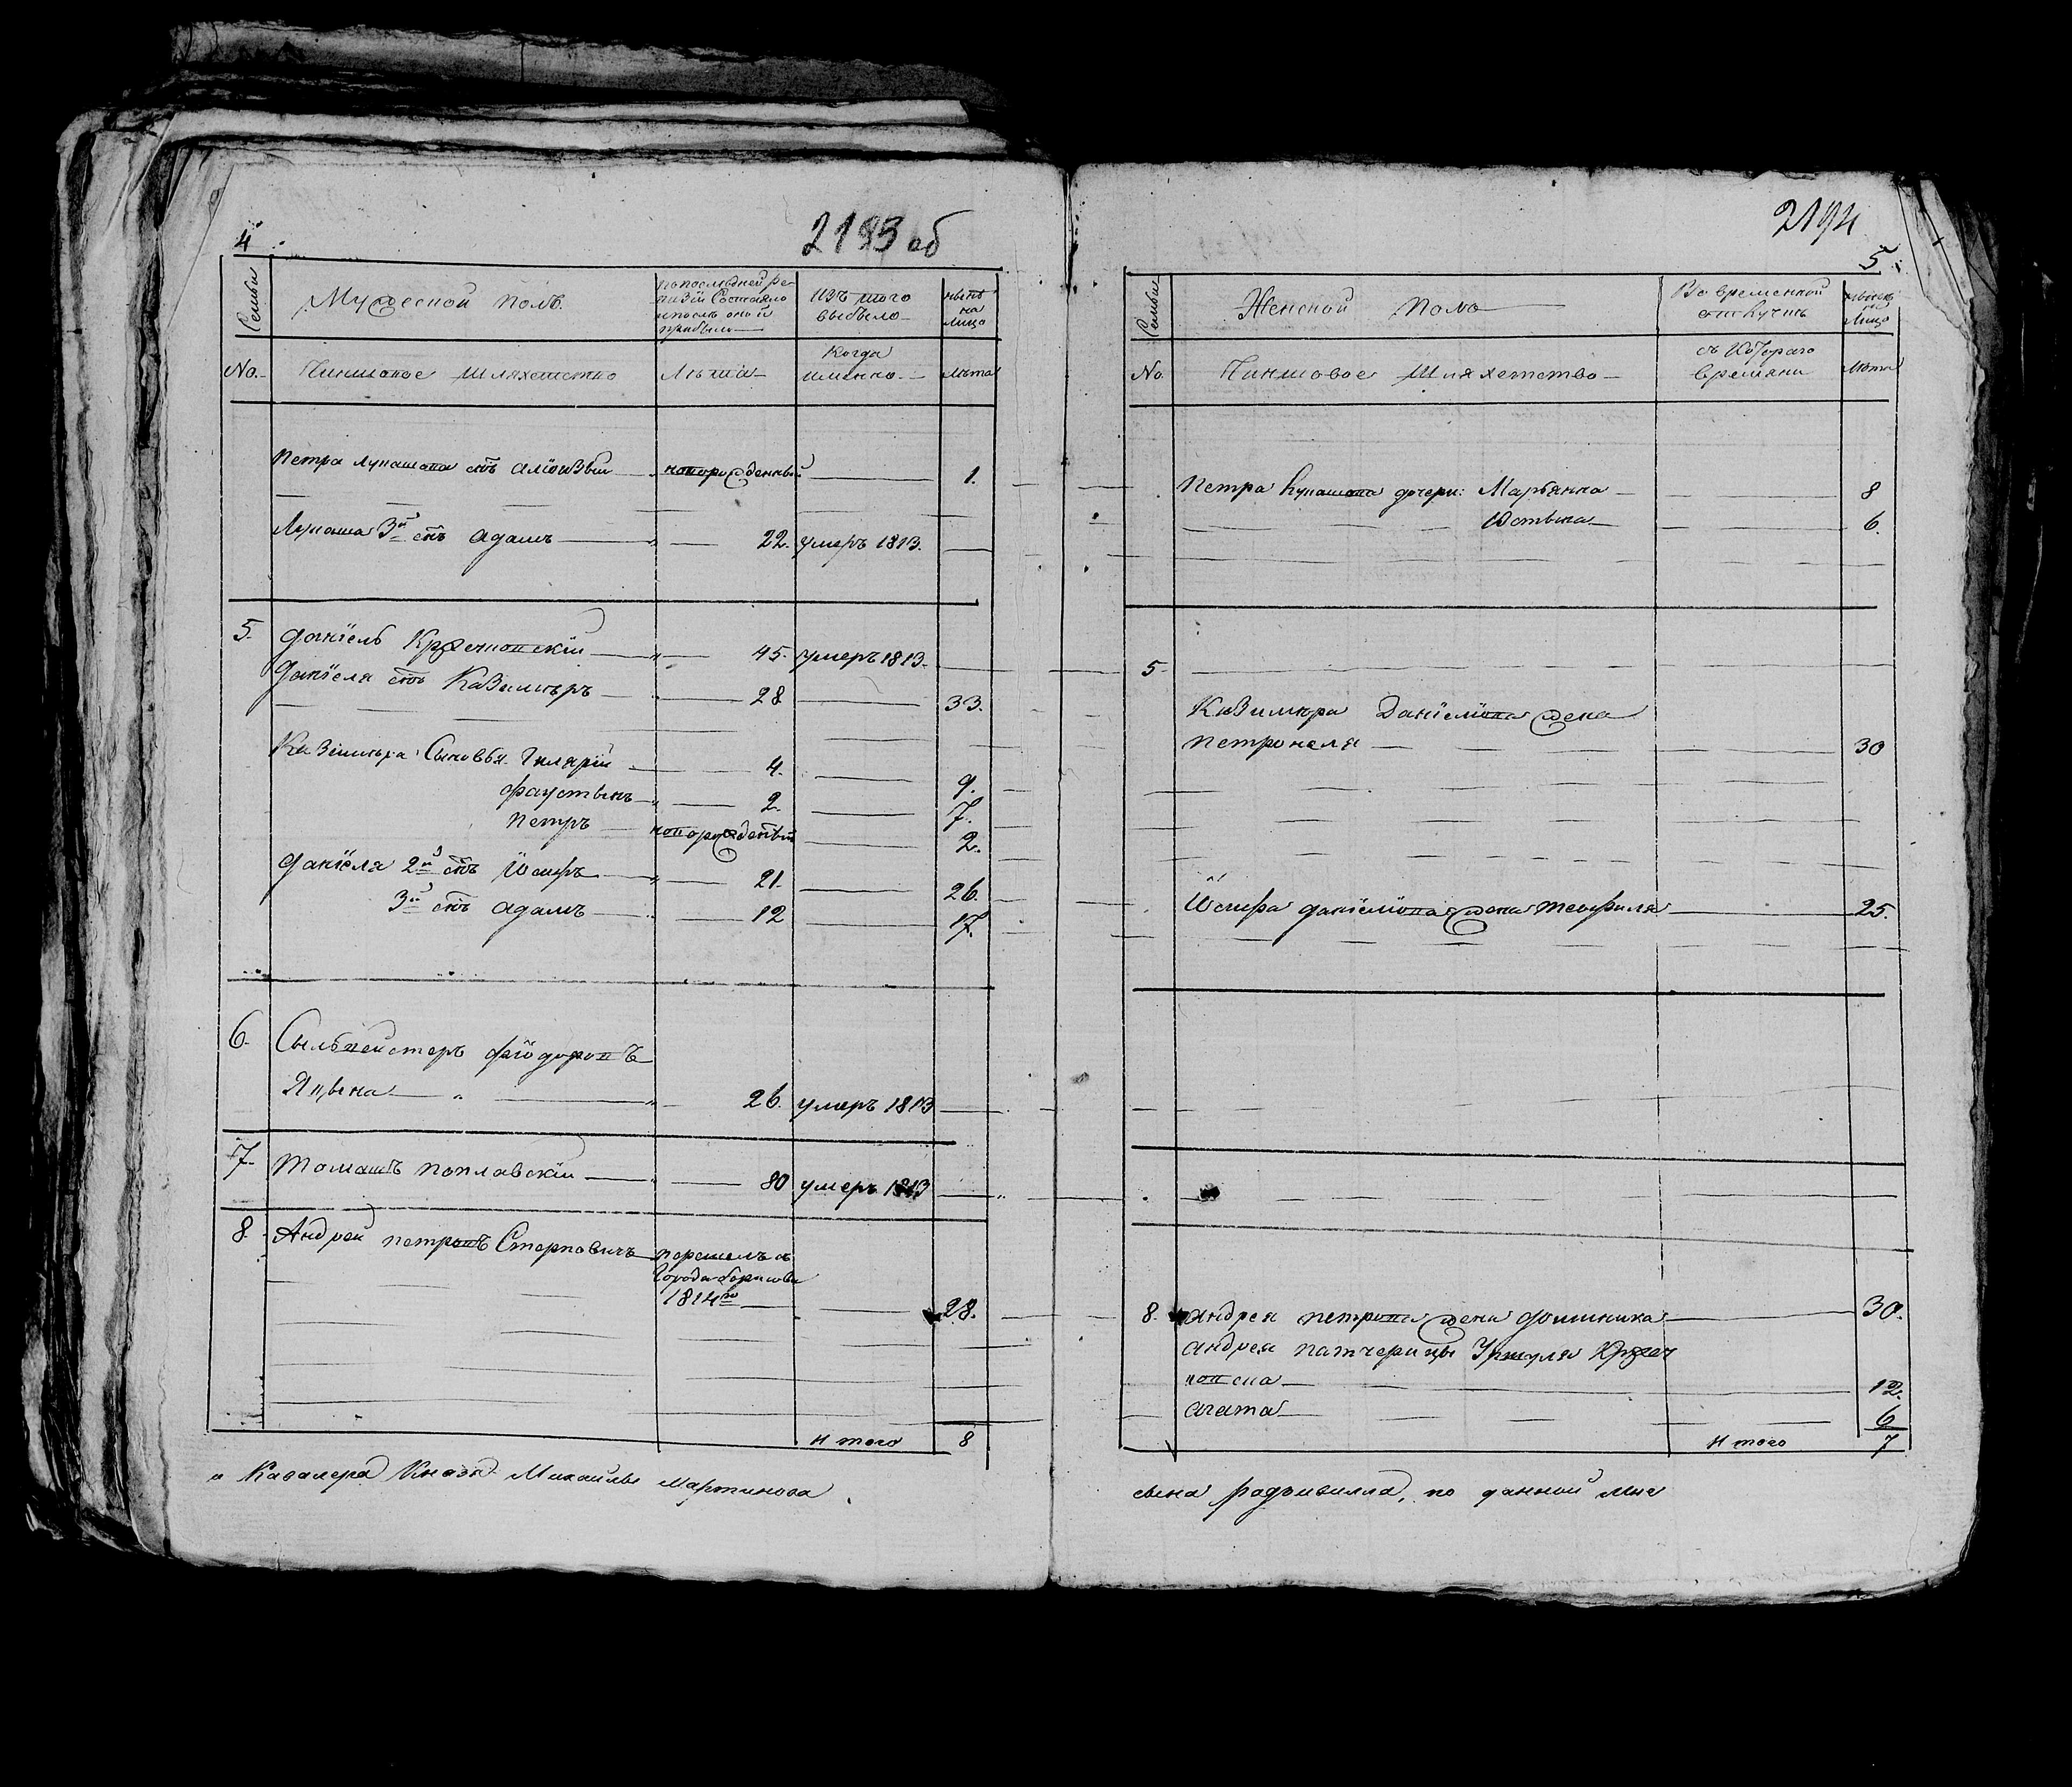 4
2193 об
Семьи
Мужеской полъ.
по последней ре-
визіи Состояло
и после оной
прибыло
Изъ того
выбыло
ныне
на
Лицо
No.
Чиншовое шляхетство
Лѣта
Когда
именно
Лѣта
Петра Лукашова сынъ Алоизый новорожденный 1.
Лукаша 3й сынъ Адамъ 22. умеръ 1813.
5. Даніель Кржечковскій 45. умеръ 1813.
Даніеля сынъ Казимиръ 28 33.
Казимира Сыновья Гилярій 4. 9.
Фаустынъ 2. 7.
Петръ новорожденный 2.
Даніеля 2й сынъ Іосифъ 21. 26.
3й сынъ Адамъ 12 17.
6. Сыльвестеръ Фіодоровъ
Яцына 26. умеръ 1813
7. Томашъ Поплавскій 80 умеръ 1813
8. Андрей Петровъ Стерповичъ перешелъ съ
Города Борисова
1814го 28.
Итого 8
и Кавалера Князя Михаила Мартинова
2194
5
Семьи
Женской Полъ
Во временной
отлучкѣ
ныне
на
Лицо
No.
Чиншовое Шляхетство
съ Котораго
времяни
Лѣта
Петра Лукашова дочери: Марьянна 8
Юстына 6.
5.
Казимира Даніелиова жена
Петронеля 30
Іосифа Даніеліова жена Теофиля 25.
8. Андрея Петрова жена Доминика 30.
Андрея патчерицы Уршуля Кржеч
ковска 12.
Агата 6
Итого 7
сына Радзивилла, по данной мне